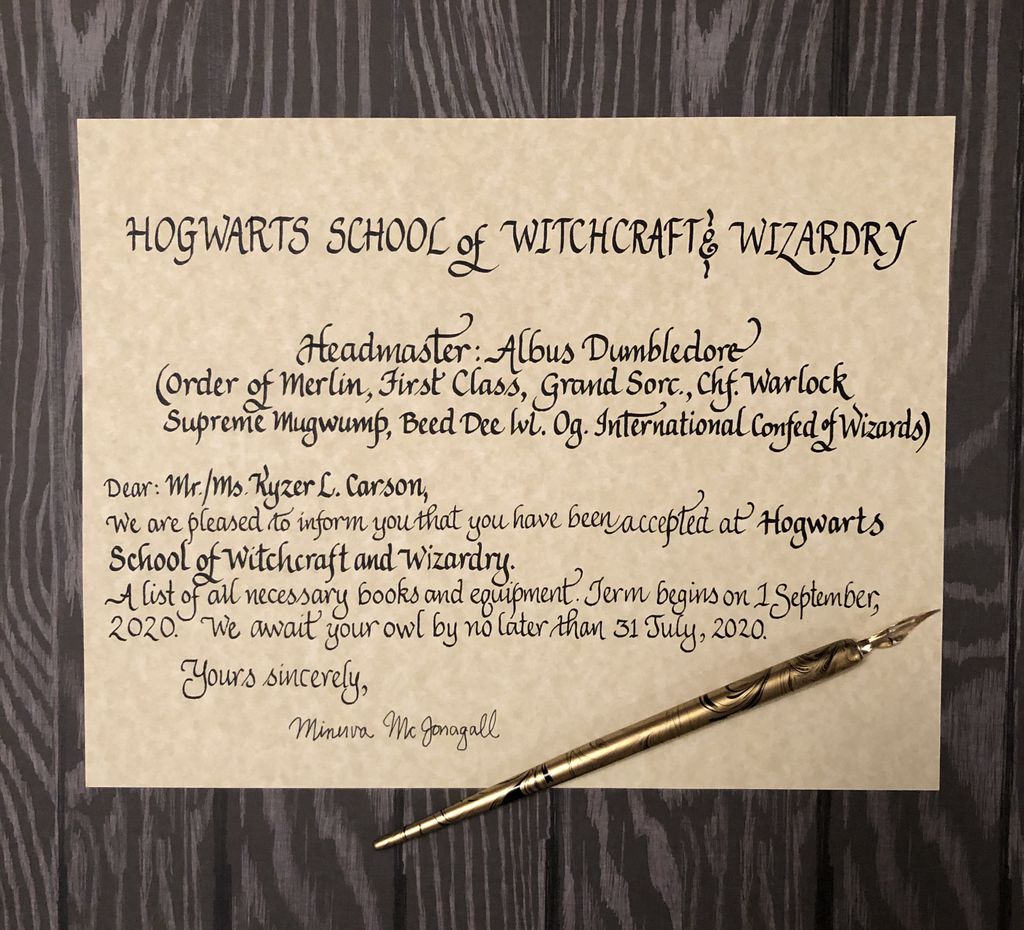 HOGWARTS SCHOOL of WITCHCRAFT & WIZARDRY
Headmaster: Albus Dumbledore
(Order of Merlin, First Class, Grand Sorc., Chf. Warlock
Supreme Mugwump, Beed Dee lvl. Og. International Confed of Wizards)
Dear: Mr./Ms. Kyzer L. Carson,
We are pleased to inform you that you have been accepted at Hogwarts
School of Witchcraft and Wizardry.
A list of all necessary books and equipment. Term begins on 1 September,
2020. We await your owl by no later than 31 July, 2020.
Yours sincerely,
Minerva McGonagall